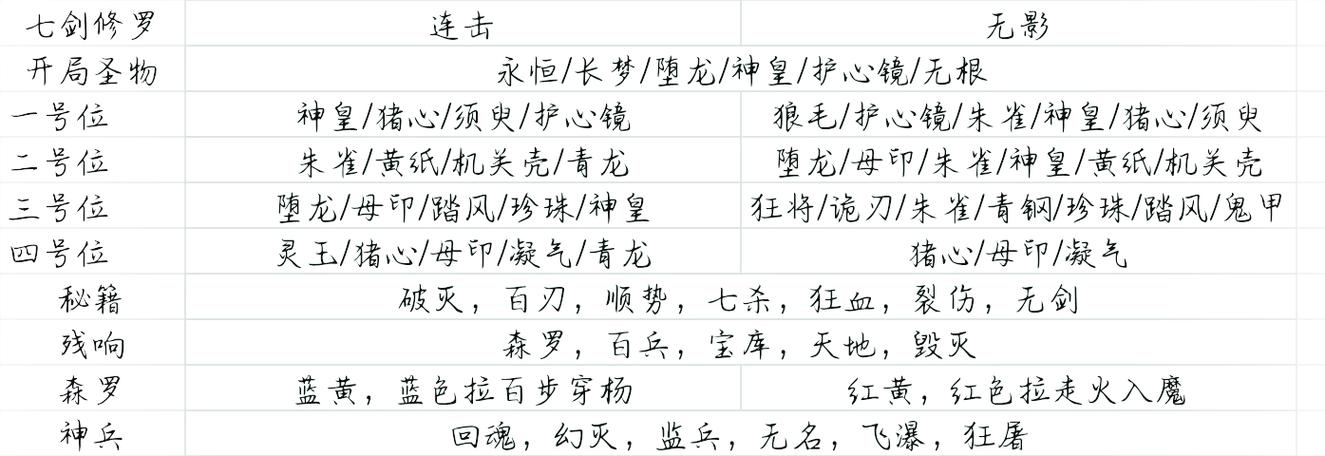 七剑修罗 连击 无影
开局圣物 永恒/长梦/堕龙/神皇/护心镜/无根
一号位 神皇/猪心/须臾/护心镜 狼毛/护心镜/朱雀/神皇/猪心/须臾
二号位 朱雀/黄纸/机关壳/青龙 堕龙/母印/朱雀/神皇/黄纸/机关壳
三号位 堕龙/母印/踏风/珍珠/神皇 狂将/诡刃/朱雀/青钢/珍珠/踏风/鬼甲
四号位 灵玉/猪心/母印/凝气/青龙 猪心/母印/凝气
秘籍 破灭，百刃，顺势，七杀，狂血，裂伤，无剑
残响 森罗，百兵，宝库，天地，毁灭
森罗 蓝黄，蓝色拉百步穿杨 红黄，红色拉走火入魔
神兵 回魂，幻灭，监兵，无名，飞瀑，狂屠